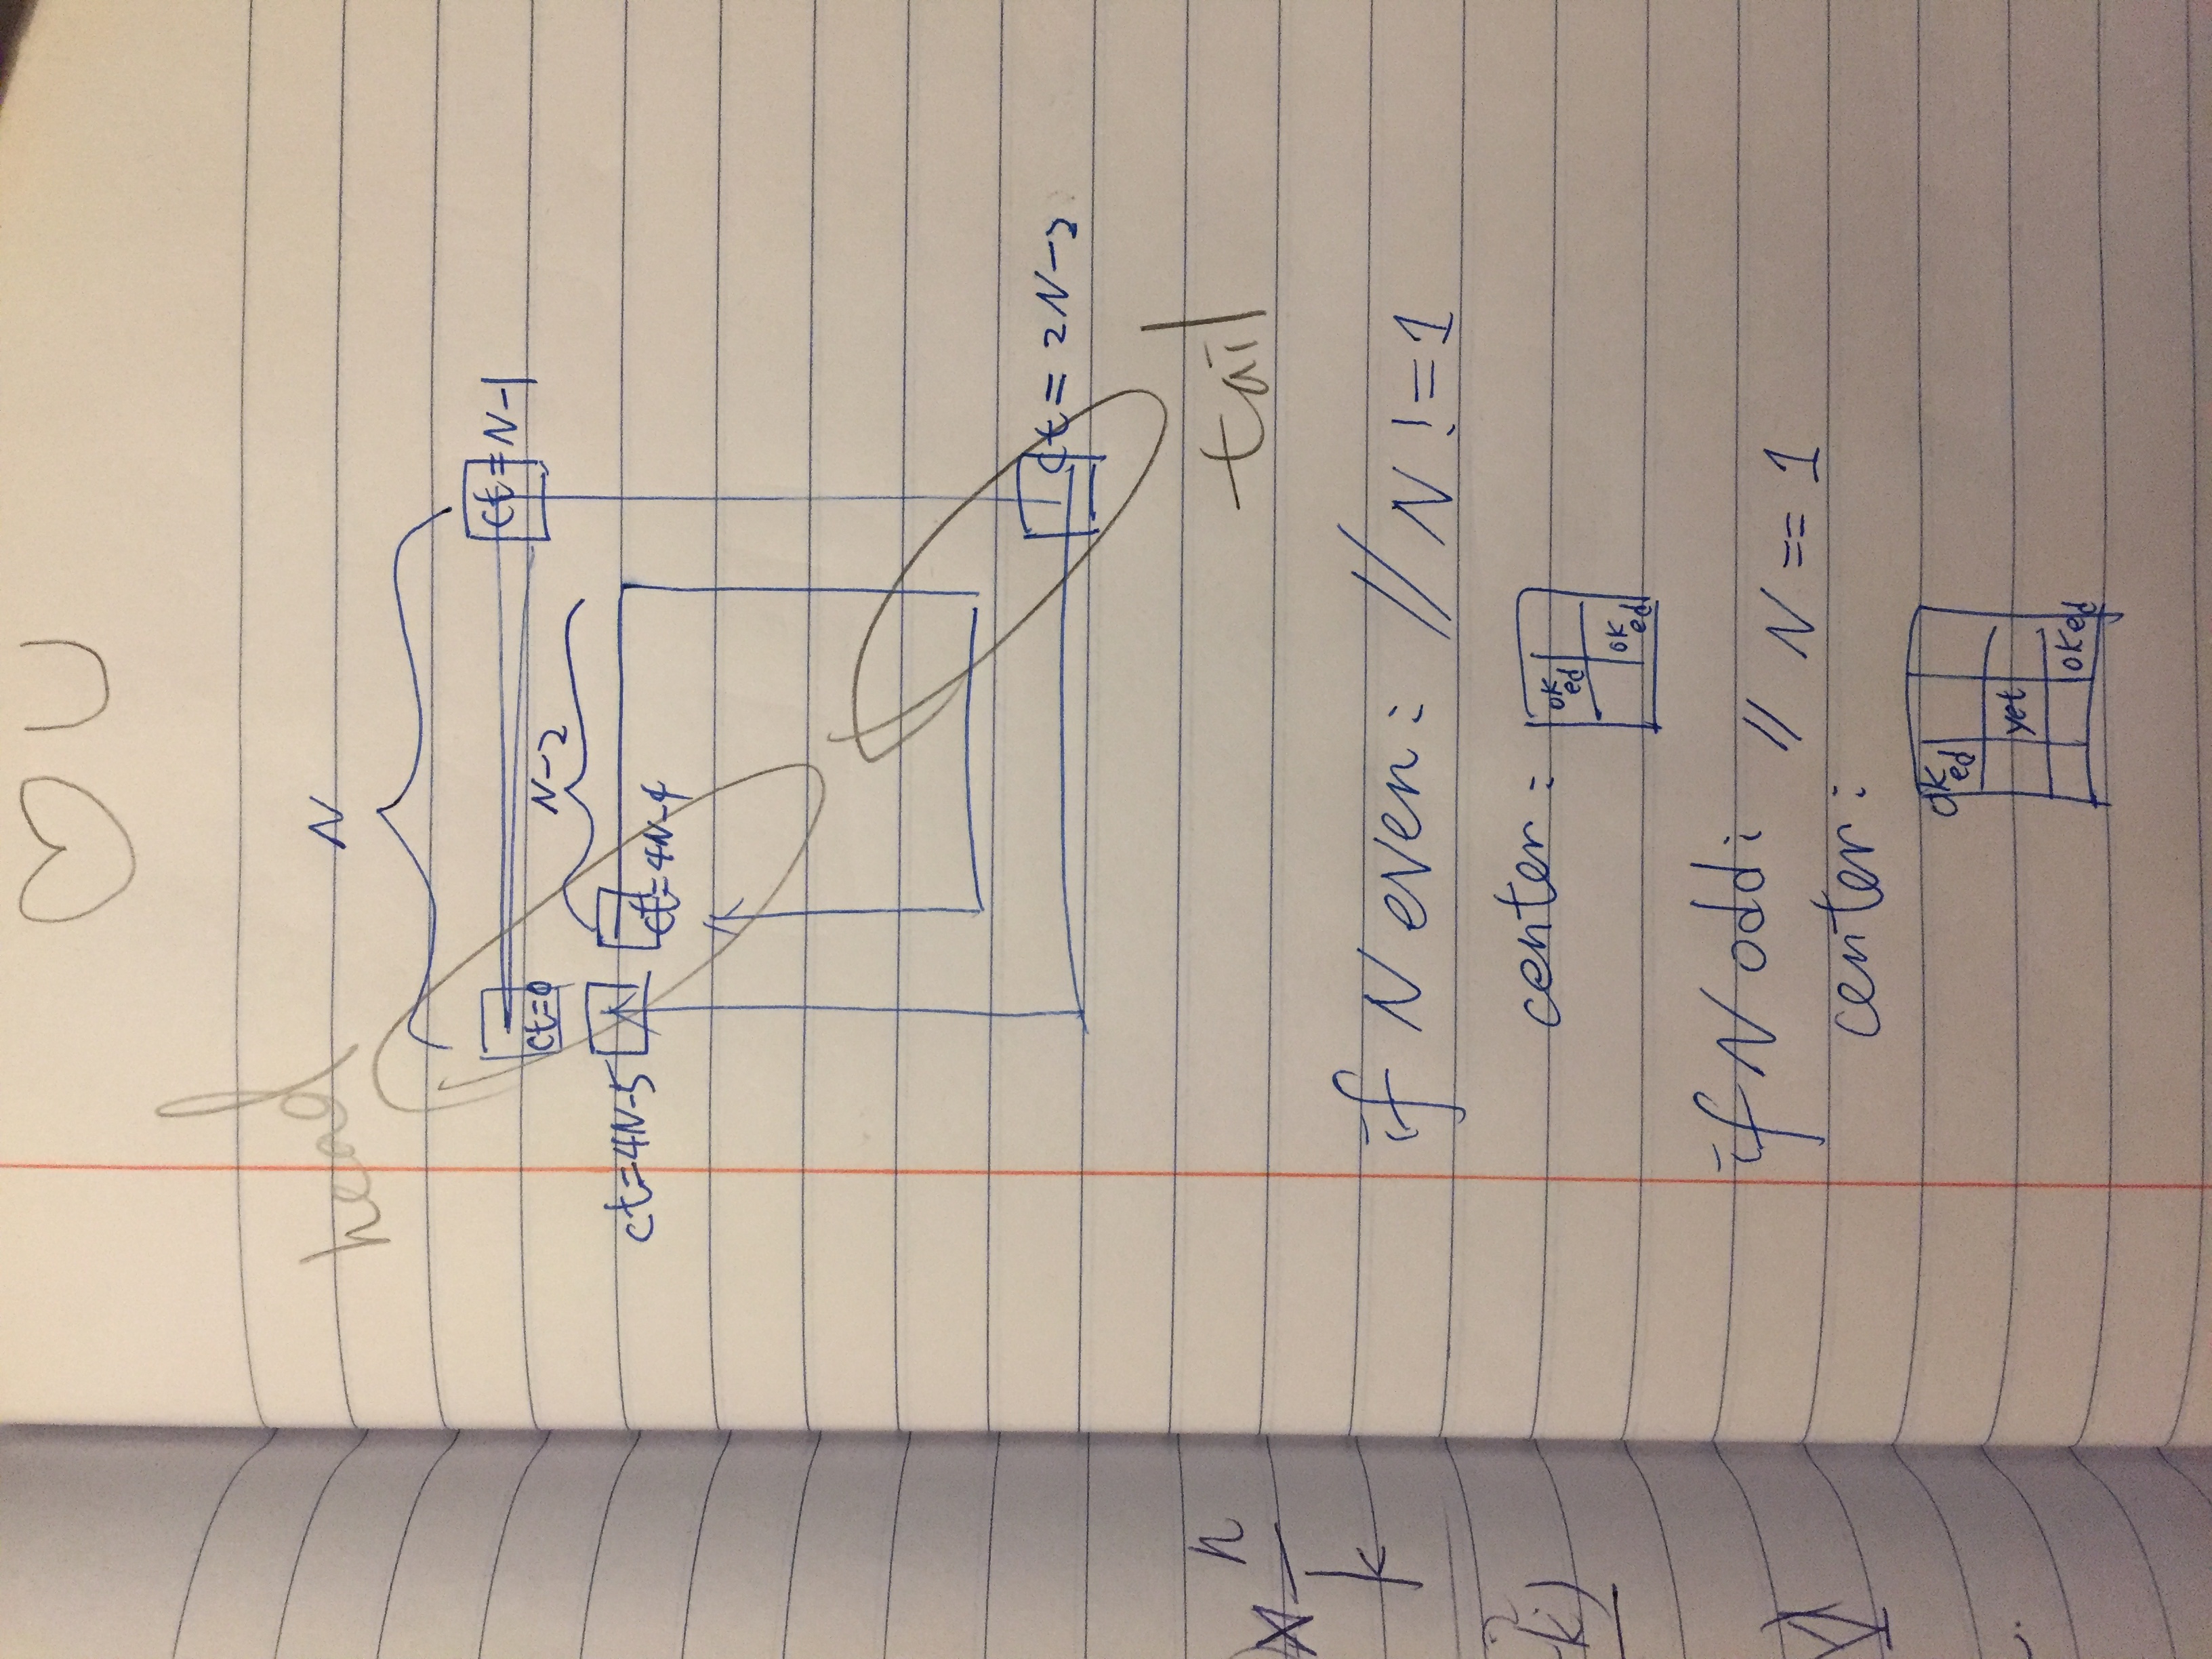 ♡ U
head
N
ct=0
ct=N-1
N-2
ct=4N-5
ct=4N-4
ct=2N-2
tail
n
k
if N even: // N != 1
center:
ok
ed
ok
ed
if N odd: // N == 1
center:
ok
ed
yet
oked
2
k)